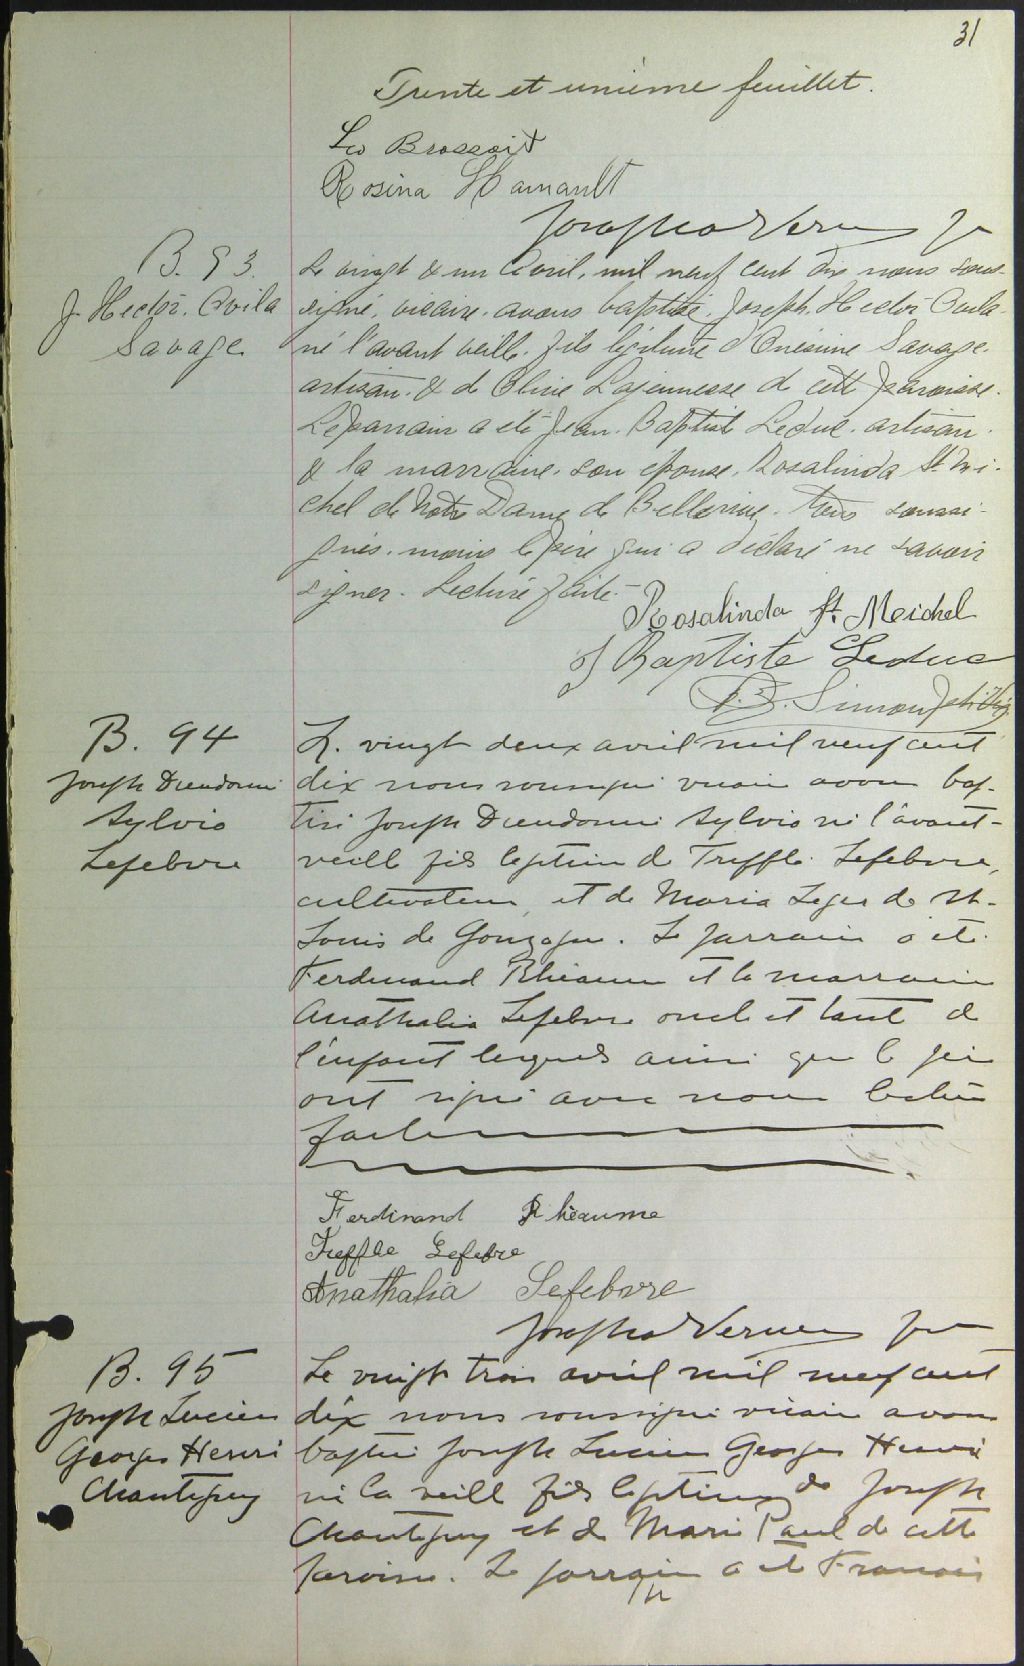 31
Trente et unième feuillet.
Leo Brossoit
Rosina Hamault
B. 93.
J. Hector. Ovila
Savage
Le vingt & un Avril, mil neuf cent dix nous sous-
signé, vicaire, avons baptisé, Joseph. Hector Ovila
né l'avant veille. fils légitime d'Onésime Savage.
artisan. & de Olive Lajeunesse de cette paroisse.
Le parrain a été Jean. Baptiste Leduc. artisan.
& la marraine. son épouse. Rosalinda St. Mi-
chel de Notre Dame de Bellerive. Tous soussi-
gnés. moins le père qui a déclaré ne savoir
signer. Lecture faite.
Rosalinda St. Meichel
J Baptiste Leduc
B. 94
Joseph Dieudonné
Sylvio
Lefebvre
Le vingt deux avril mil neuf cent
dix nous soussigné vicaire avons bap-
tisé Joseph Dieudonné Sylvio né l'avant-
veille fils légitime de Treffle Lefebvre,
cultivateur, et de Maria Leger de St-
Louis de Gonzague. Le parrain a été
Ferdinand Rhéaume et la marraine
Anathalia Lefebvre oncle et tante de
l'enfant lesquels ainsi que le père
ont signé avec nous lecture
faite
Ferdinand Rhéaume
Treffle Lefebre
Anathalia Lefebvre
B. 95
Joseph Lucien
Georges Henri
Chantigny
Le vingt trois avril mil neuf cent
dix nous soussigné vicaire avons
baptisé Joseph Lucien Georges Henri
né la veille fils légitime de Joseph
Chantigny et de Marie Paul de cette
paroisse. Le parrain a été François